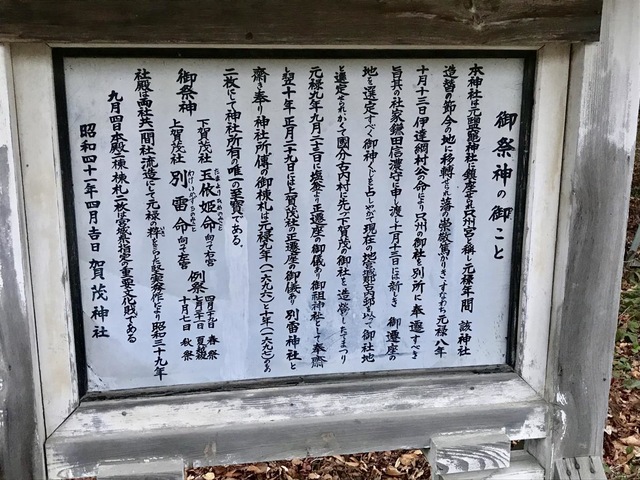 御祭神の御こと
本神社は元塩竈神社に鎮座され只州宮と称し元禄年間 該神社
造替の節今の地に移転せられ藩の崇敬篤かりきすなわち元禄八年
十月十三日伊達綱村公命により只州の御社を別所に奉遷すべき
旨其の社家鎌田信濃守に申し渡し十月十三日には新しき 御遷座の
地を選定すべく御神くじをと申しやがて現在の地宮城郡古内郡を以て御社地
と選定せられかくて國分古内村に先づ下賀茂の御社を造営したてまつり
元禄九年九月二十三日に塩釜より正遷座の御儀あり御祖神社として奉齋
し翌十年正月二十九日には上賀茂社の正遷座の御儀あり別雷神社と
齋き奉り神社所傳の御棟札は元禄九年(一六九六)十年(一六九七)の
二枚にて神社所有の唯一の至寶である.
御祭神
下賀茂社 玉依姫命 向って右宮
上賀茂社 別雷命 向って左宮
例祭
四月二十日 春祭
七月二十日 夏祭
十月七日 秋祭
社殿は両社共一間社流造にして元禄の粋をとった堅実秀作により昭和三十九年
九月四日本殿二棟棟札二枚は宮城県指定の重要文化財である
昭和四十二年四月吉日 賀茂神社